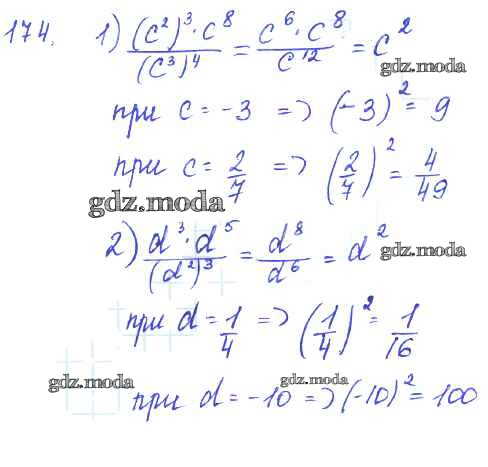 174. 1) (c²)³·c⁸/(c³)⁴ = c⁶·c⁸/c¹² = c²
gdz.moda
при c = -3 => (-3)² = 9
при c = 2/7 => (2/7)² = 4/49
gdz.moda
2) d³·d⁵/(d²)³ = d⁸/d⁶ = d²
gdz.moda
при d = 1/4 => (1/4)² = 1/16
gdz.moda
gdz.moda
при d = -10 => (-10)² = 100